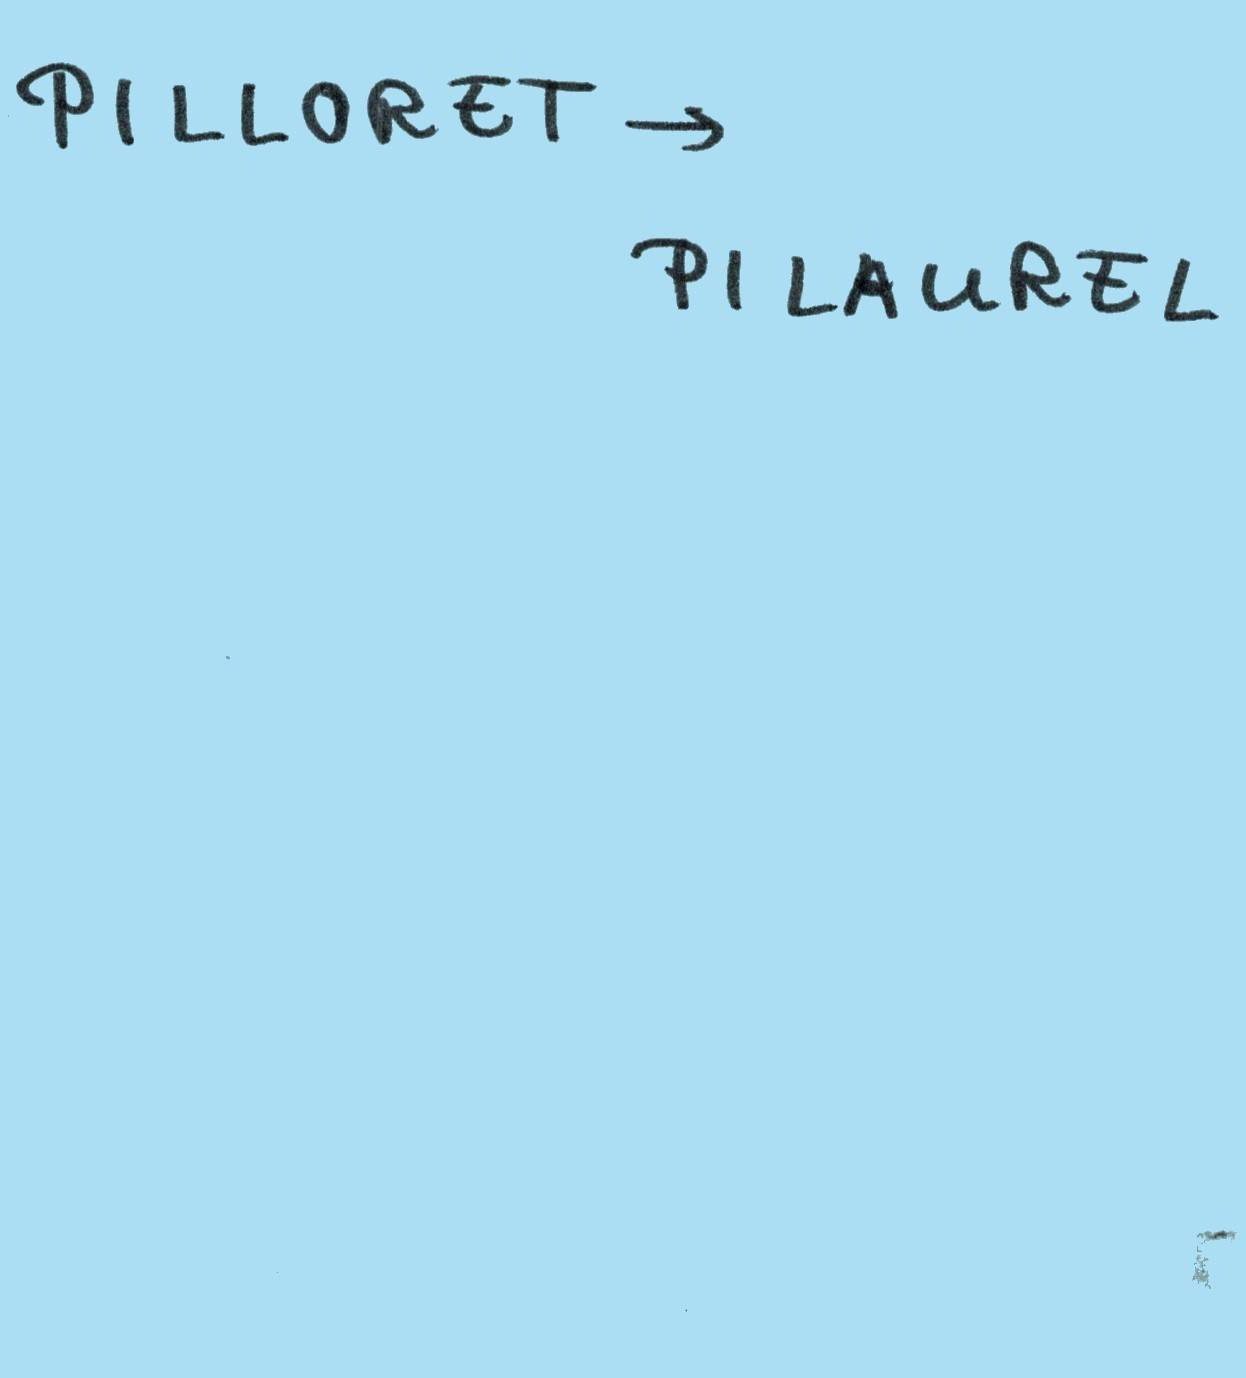 PILLORET →
PILAUREL